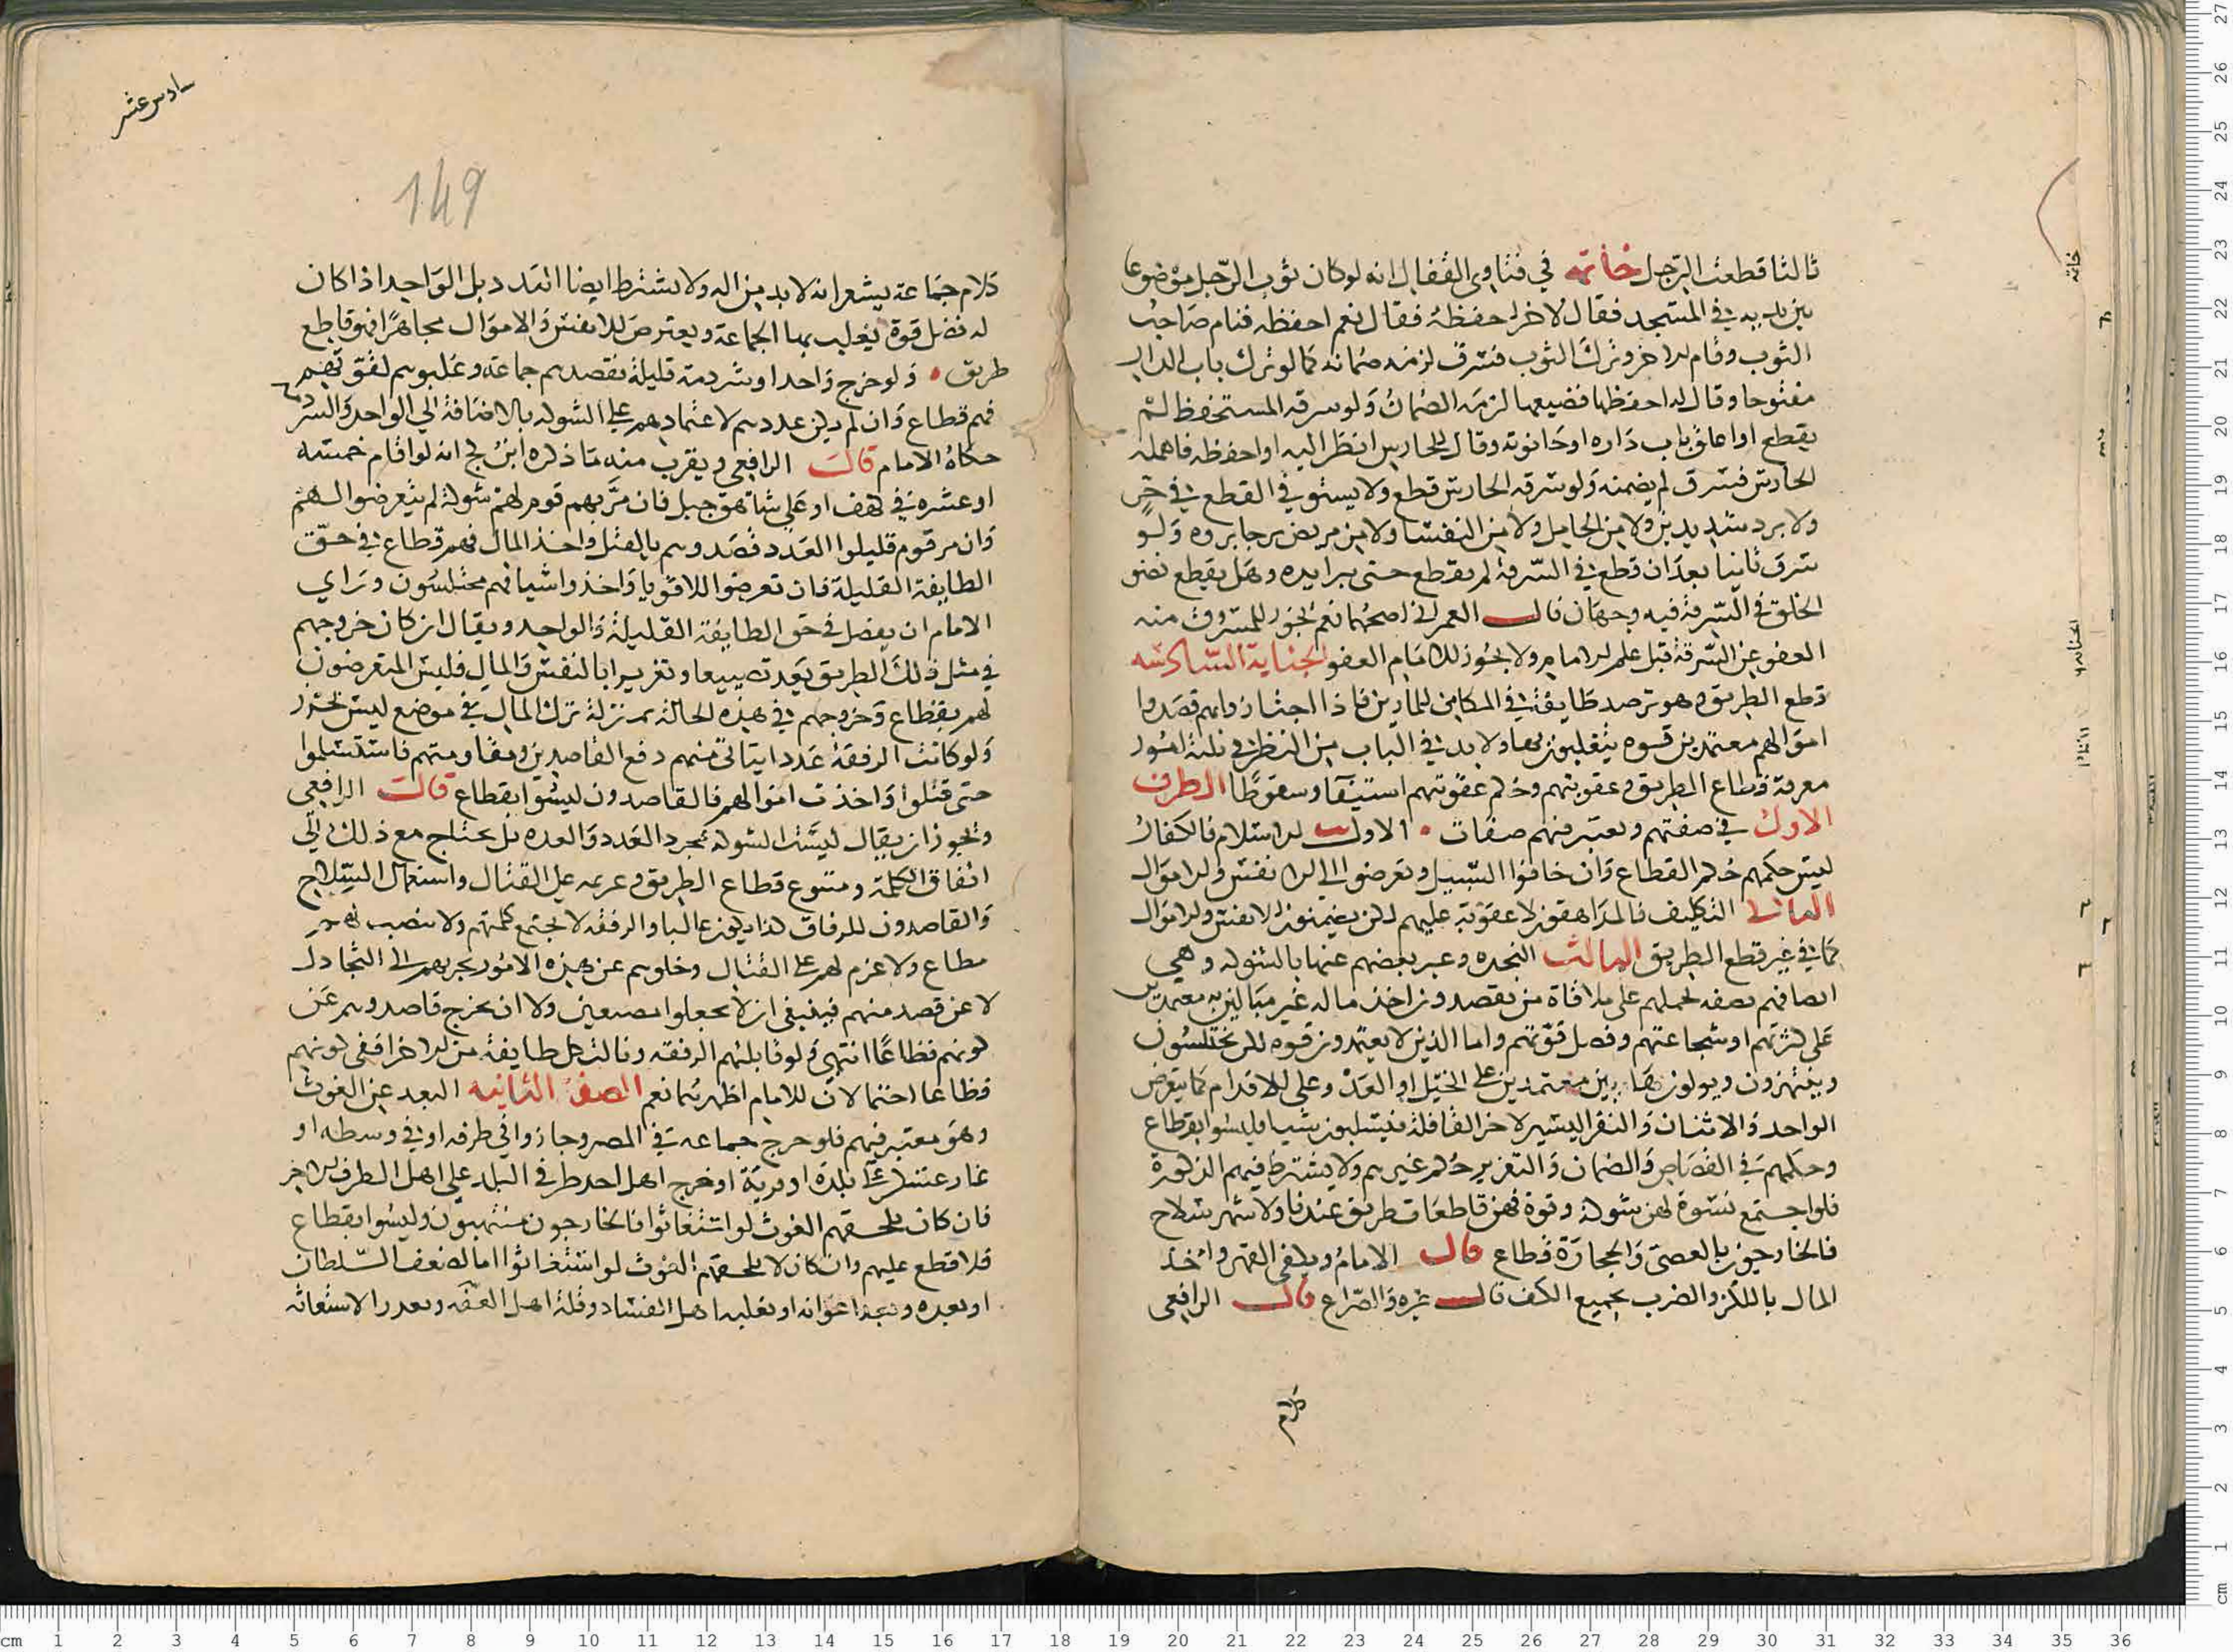 ثالثا قطعت الرجل خاتمه في فتاوى القفال انه لو كان ثوب الرجل موضوعا
بين يديه في المسجد فقال لاخر احفظه فقال نعم احفظه فنام صاحب
الثوب وقام الاخر وترك الثوب فسرق لزمه ضمانه كما لو ترك باب الدار
مفتوحا وقال له احفظها فضيعها لزمه الضمان ولو سرقه المستحفظ لم
يقطع او اغلق باب داره او حانوته وقال للحارس انظر اليه او احفظه فاهمله
الحارس فسرق لم يضمنه ولو سرقه الحارس قطع ولا يستوفي القطع في حر
ولا برد شديدين ولا من الحامل ولا من النفسا ولا من مريض يرجا بروه ولو
سرق ثانيا بعد ان قطع في السرقة لم يقطع حتى يبرا يده وهل يقطع نضو
الخلق في السرقة فيه وجهان قال العمراني اصحهما نعم يجوز للمسروق منه
العفو عن السرقة قبل علم الامام ولا يجوز للامام العفو الجناية السادسه
قطع الطريق وهو ترصد طايفة في المكامن للمارين فاذا اجتازوا بهم قصدوا
اموالهم معتمدين قوه يتغلبون بها ولا بد في الباب من النظر في ثلثة امور
معرفة قطاع الطريق وعقوبتهم وحكم عقوبتهم استيفا وسقوطا الطرف
الاول في صفتهم ويعتبر فيهم صفات الاول الاسلام فالكفار
ليس حكمهم حكم القطاع وان خافوا السبيل وتعرضوا الى الانفس والاموال
الثاني التكليف فالمراهقون لا عقوبة عليهم لكن يضمنون الانفس والاموال
كما في غير قطع الطريق الثالث النجده وعبر بعضهم عنها بالشوكه وهي
اتصافهم بصفه تحملهم على ملاقاة من يقصدون اخذ ماله غير مبالين به معتمدين
على كثرتهم او شجاعتهم وفضل قوتهم واما الذين لا يعتمدون قوه لكن يختلسون
وينتهزون ويولون هاربين معتمدين على الخيل او العدو وعلى الاقدام كما يتعرض
الواحد والاثنان والنفر اليسير لاخر القافلة فيسلبون شيا فليسوا بقطاع
وحكمهم في القصاص والضمان والتعزير حكم غيرهم ولا يشترط فيهم الذكورة
فلو اجتمع نسوة لهن شوكة وقوة فهن قاطعات طريق عندنا ولا شهر سلاح
فالخارجون بالعصي والحجارة قطاع قال الامام ويكفي القهر واخذ
المال باللكز والضرب بجميع الكف قال غيره والصراع قال الرافعي
كلام
سادس عشر
149
كلام جماعة يشعر انه لا بد من اله ولا يشترط ايضا العدد بل الواحد اذا كان
له فضل قوة يغلب بها الجماعة ويعترض للانفس والاموال مجاهرا فهو قاطع
طريق ولو خرج واحد او شرذمة قليلة بقصدهم جماعة وغلبوهم لقوتهم
فهم قطاع وان لم يكن عددهم لاعتمادهم على الشوكه بالاضافة الى الواحد والشرذمة
حكاه الامام قالت الرافعي ويقرب منه ما ذكره ابن كج انه لو اقام خمسه
او عشره في كهف او على شاهق جبل فان مر بهم قوم لهم شوكة لم يتعرضوا لهم
وان مر قوم قليلوا العدد قصدوهم بالقتل واخذ المال فهم قطاع في حق
الطايفة القليلة فان تعرضوا للاقويا واخذوا شيا فهم مختلسون وراي
الامام ان يفصل في حق الطايفة القليلة والواحد ويقال ان كان خروجهم
في مثل ذلك الطريق يعد تضييعا وتغريرا بالنفس والمال فليس المتعرضون
لهم بقطاع وخروجهم في هذه الحالة بمنزلة ترك المال في موضع ليس بحرز
ولو كانت الرفقة عددا يتاتى منهم دفع القاصدين ومقاومتهم فاستسلموا
حتى قتلوا واخذت اموالهم فالقاصدون ليسوا بقطاع قالت الرافعي
ويجوز ان يقال ليست الشوكة بمجرد العدد والعده بل يحتاج مع ذلك الى
اتفاق الكلمة ومتبوع قطاع الطريق وعزيمة على القتال واستعمال السلاح
والقاصدون للرفاق كذا يكون غالبا والرفقه لا تجتمع كلمتهم ولا ينصب لهم
مطاع ولا عزم لهم على القتال وخلوهم عن هذه الامور يجرهم الى التخاذل
لا عن قصد منهم فينبغي ان لا يجعلوا مضيعين ولا ان يخرج قاصدوهم عن
كونهم قطاعا انتهى ولو قابلتهم الرفقه ونالت كل طايفة من الاخر ففي كونهم
قطاعا احتمالان للامام اظهرهما نعم الصفة الثانيه البعد عن الغوث
وهو معتبر فيهم فلو خرج جماعه في المصر وحاربوا في طرفه او في وسطه او
اغار عسكر على بلدة او قرية او خرج اهل احد طرفي البلد على اهل الطرف الاخر
فان كان يلحقهم الغوث لو استغاثوا فالخارجون منتهبون وليسوا بقطاع
فلا قطع عليهم وان كان لا يلحقهم الغوث لو استغاثوا اما لضعف السلطان
او بعده وبعد اعوانه او تغلبه اهل الفساد وقلة اهل العفه وتعذر الاستغاثه